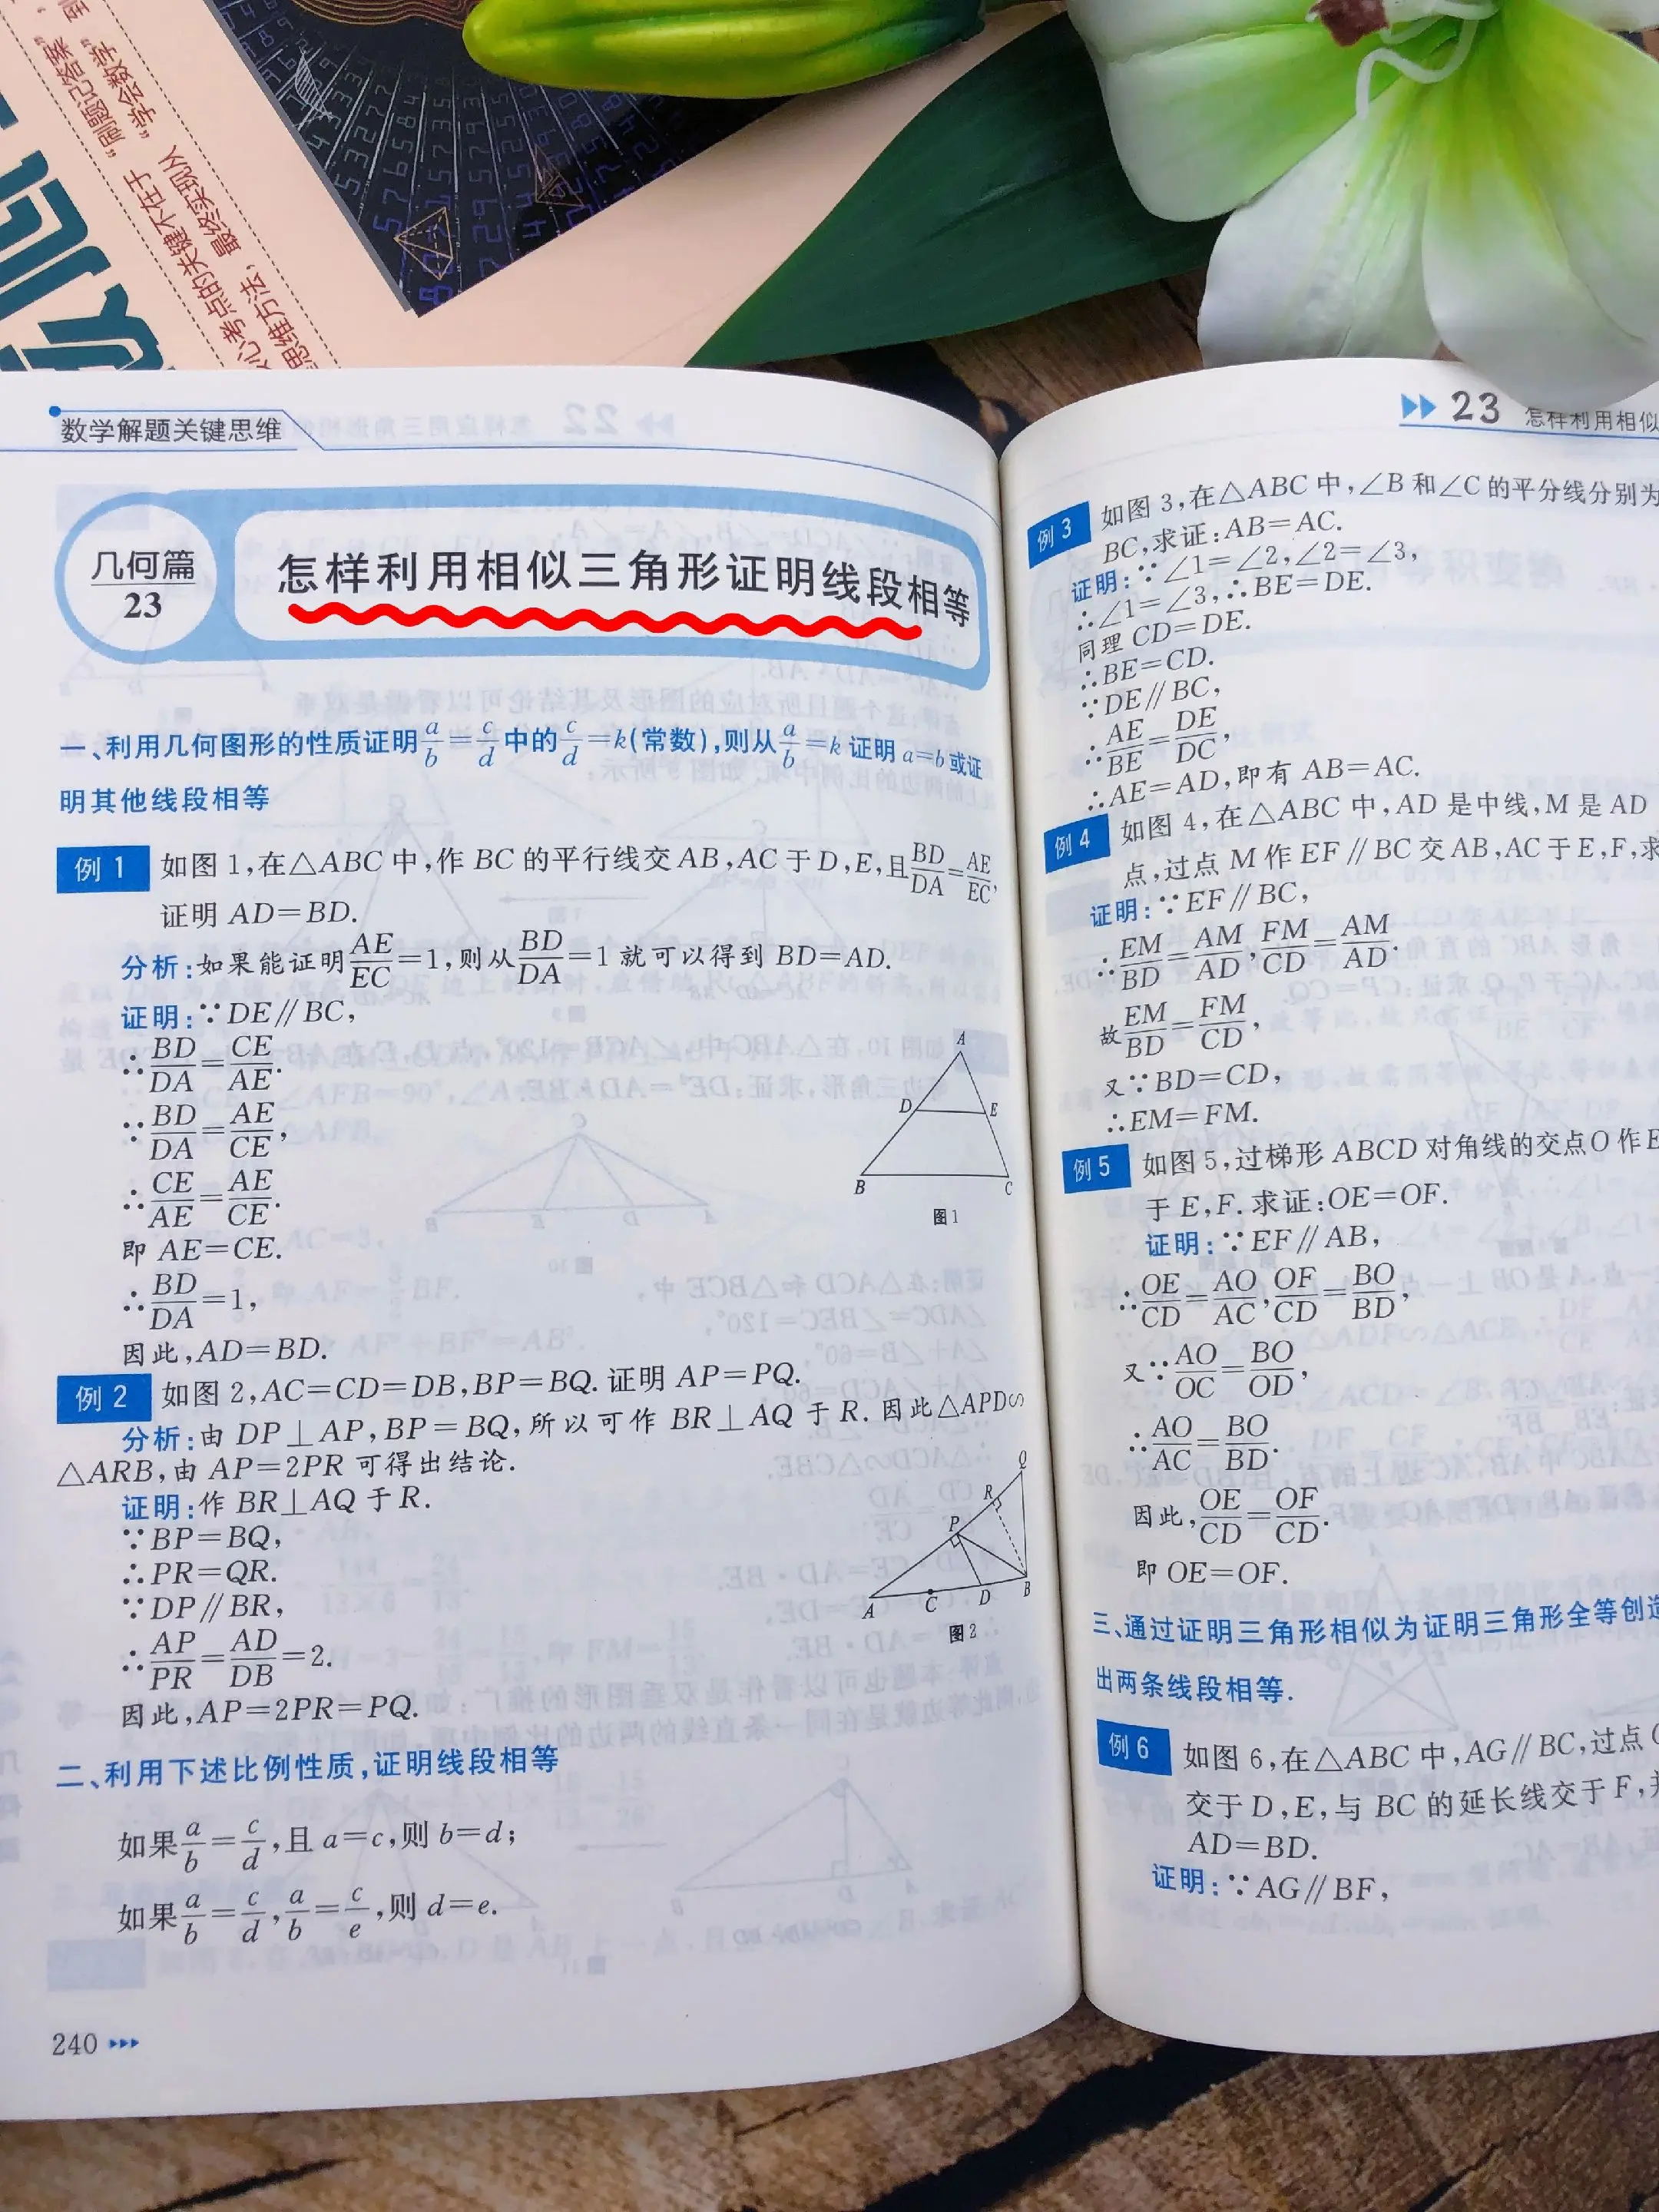 “刷题记答案”
“学会数学”
心考点的关键不在于
思维方法，最终实现从
数学解题关键思维
几何篇
23
怎样利用相似三角形证明线段相等
一、利用几何图形的性质证明a/b=c/d中的c/d=k(常数),则从a/b=k证明a=b或证
明其他线段相等
例1 如图1,在△ABC中,作BC的平行线交AB,AC于D,E,且BD/DA=AE/EC,
证明AD=BD.
分析:如果能证明AE/EC=1,则从BD/DA=1就可以得到BD=AD.
证明:∵DE∥BC,
∴BD/DA=CE/AE.
∵BD/DA=AE/CE,
∴CE/AE=AE/CE.
即AE=CE.
∴BD/DA=1,
因此,AD=BD.
A
D
E
B
C
图1
例2 如图2,AC=CD=DB,BP=BQ.证明AP=PQ.
分析:由DP⊥AP,BP=BQ,所以可作BR⊥AQ于R.因此△APD∽
△ARB,由AP=2PR可得出结论.
证明:作BR⊥AQ于R.
∵BP=BQ,
∴PR=QR.
∵DP∥BR,
∴AP/PR=AD/DB=2.
因此,AP=2PR=PQ.
Q
R
P
A
C
D
B
图2
二、利用下述比例性质,证明线段相等
如果a/b=c/d,且a=c,则b=d;
如果a/b=c/d,a/b=c/e,则d=e.
240
23 怎样利用相似
例3 如图3,在△ABC中,∠B和∠C的平分线分别为
BC,求证:AB=AC.
证明:∵∠1=∠2,∠2=∠3,
∴∠1=∠3,∴BE=DE.
同理CD=DE.
∴BE=CD.
∵DE∥BC,
∴AE/BE=DE/DC,
∴AE=AD,即有AB=AC.
例4 如图4,在△ABC中,AD是中线,M是AD
点,过点M作EF∥BC交AB,AC于E,F,求
证明:∵EF∥BC,
∴EM/BD=AM/AD,FM/CD=AM/AD.
故EM/BD=FM/CD,
又∵BD=CD,
∴EM=FM.
例5 如图5,过梯形ABCD对角线的交点O作E
于E,F.求证:OE=OF.
证明:∵EF∥AB,
∴OE/CD=AO/AC,OF/CD=BO/BD,
又∵AO/OC=BO/OD,
∴AO/AC=BO/BD.
因此,OE/CD=OF/CD.
即OE=OF.
三、通过证明三角形相似为证明三角形全等创造
出两条线段相等.
例6 如图6,在△ABC中,AG∥BC,过点
交于D,E,与BC的延长线交于F,
AD=BD.
证明:∵AG∥BF,